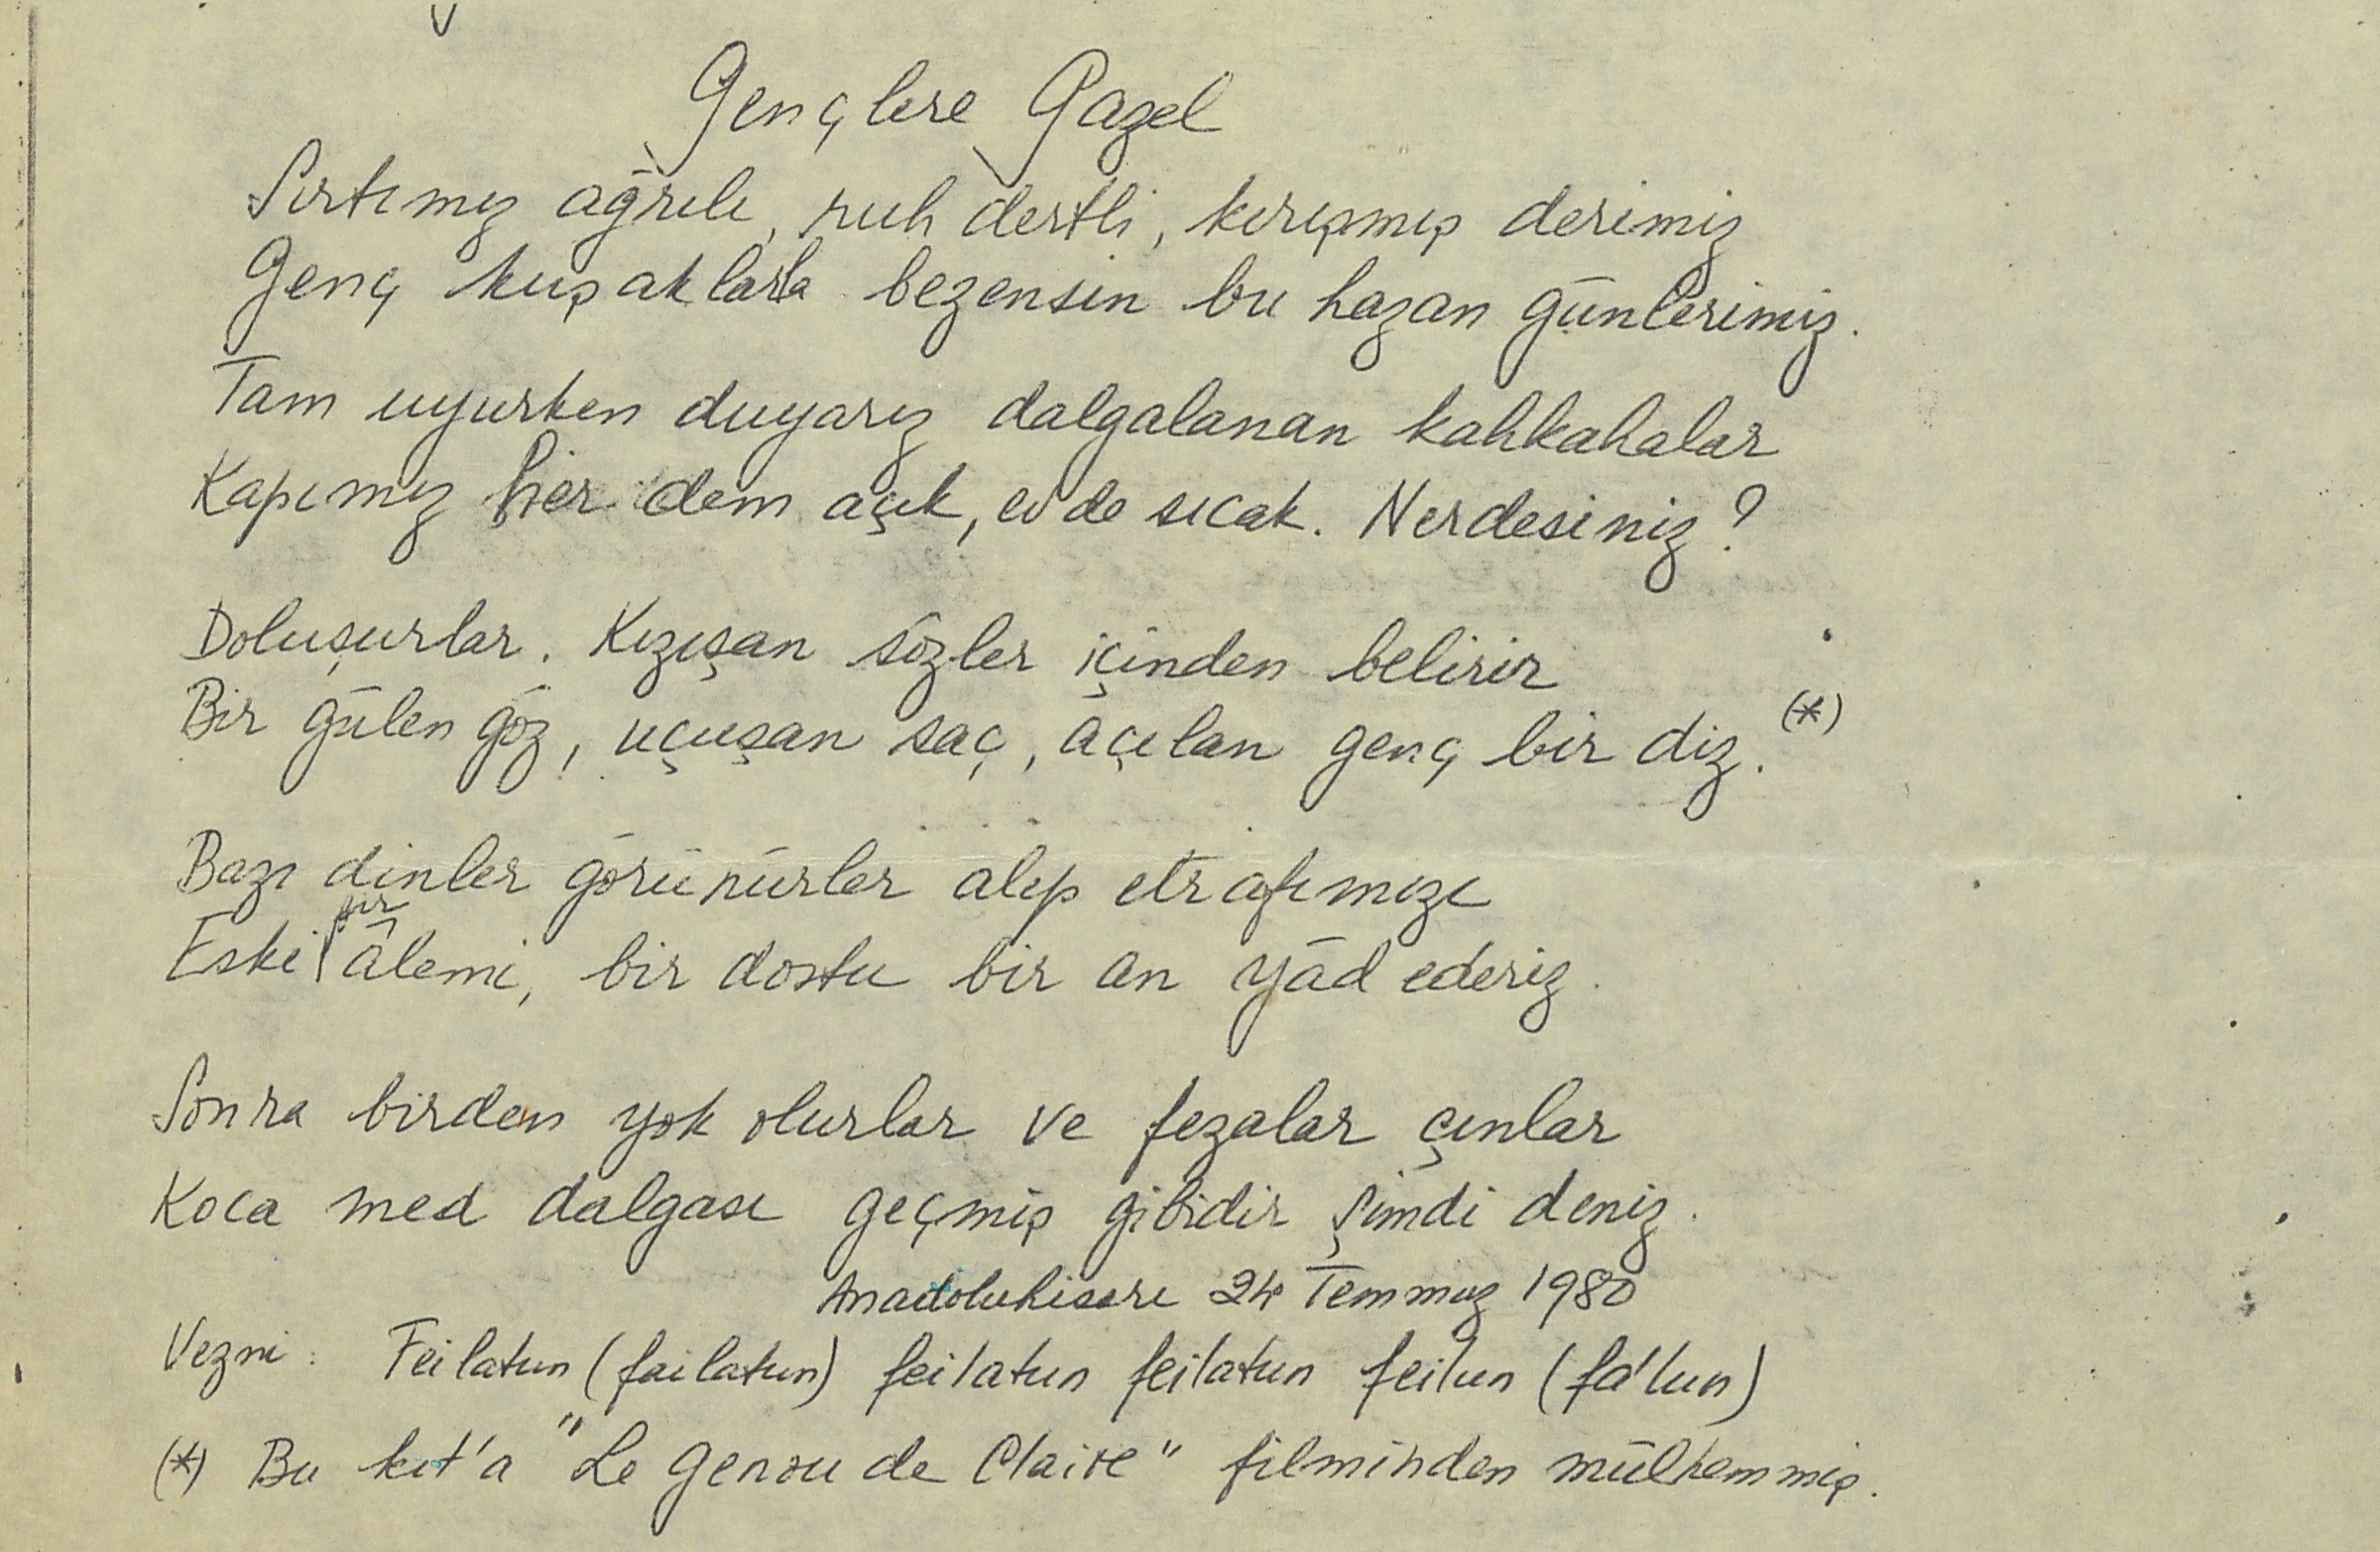 Gençlere Gazel
Sırtımız ağrılı, ruh dertli, kırışmış derimiz
Genç kuşaklarla bezensin bu hazan günlerimiz.
Tam uyurken duyarız dalgalanan kahkahalar
Kapımız her dem açık, ev de sıcak. Nerdesiniz?
Doluşurlar. Kızışan sözler içinden belirir
Bir gülen göz, uçuşan saç, açılan genç bir diz. (*)
Bazı dinler görünürler alıp etrafımızı
Eski bir âlemi, bir dostu bir an yâd ederiz.
Sonra birden yok olurlar ve fezalar çınlar
Koca med dalgası geçmiş gibidir şimdi deniz.
Anadoluhisarı 24 Temmuz 1980
Vezni: Feilatun (failatun) feilatun feilatun feilun (fa'lun)
(*) Bu kıt'a "Le genou de Claire" filminden mülhemmiş.